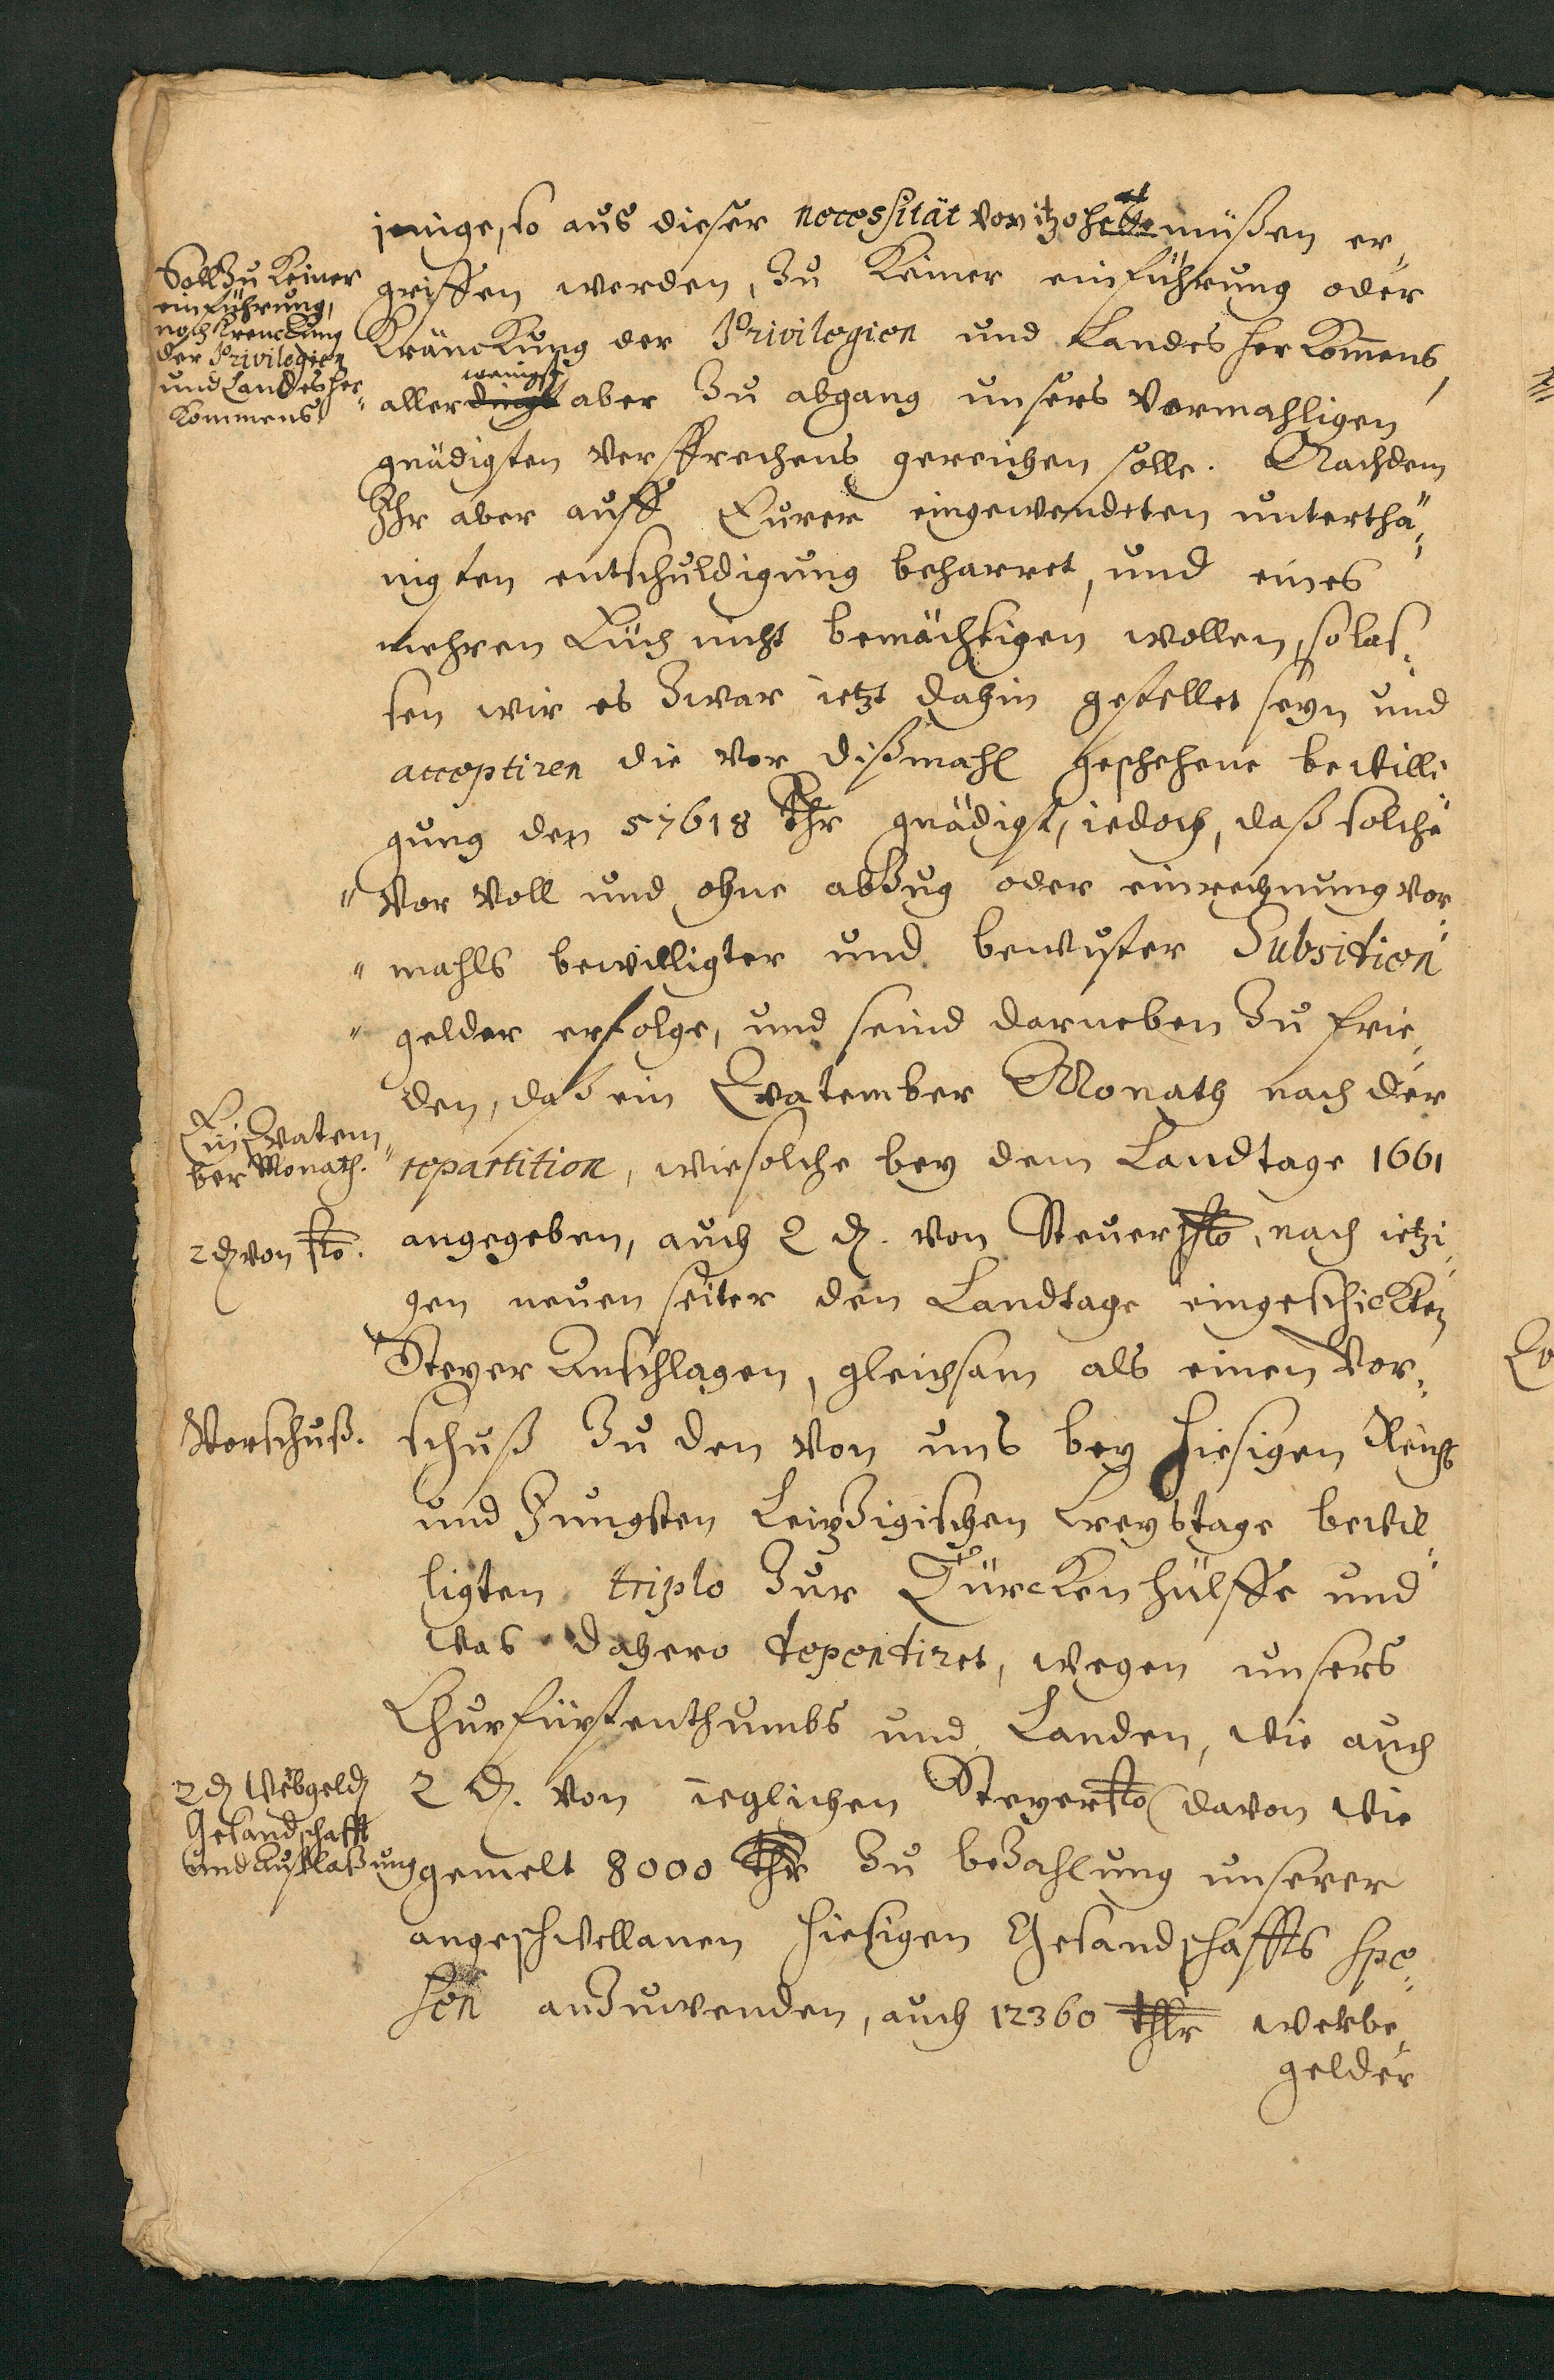 jenige, so aus dieser necessität vor itzo hat müßen er-
griffen werden, zu keiner einführung oder
Kränckung der Privilegien und Landes herkom̄ens
aller wenigst aber zu abgang unsers vormahligen
gnädigsten versprechens gereichen solle. Nachdem
Ihr aber auff Eurer eingewendeten unterthä-
nigsten entschuldigung beharret, und eines
mehren Euch nicht bemächtigen wollen, so las-
sen wir es zwar ietzt dahin gestellet seyn und
acceptiren die vor dißmahl geschehene bewilli-
gung der 57618 Thlr gnädigst, iedoch, daß solche
" vor voll und ohne abzug oder einrechnung vor-
" mahls bewilligter und bewuster Subsidien
" gelder erfolge, und seind darneben zu frie-
den, daß ein Quatember Monath nach der
repartition, wie solche bey dem Landtage 1661
angegeben, auch 2 ₰. von Steuer ßo, nach ietzi-
gen neuen seiter den Landtage eingeschickten
Steyer Anschlagen, gleichsam als einen Vor-
schuß zu den von uns bey hiesigen Reichs
und Jungsten Leipzigischen Creystage bewil-
ligten triplo zur Türcken hülffe und
was dahero dependiret, wegen unsers
Churfürstenthumbs und Landen, wie auch
2 ₰. von ieglichen Steyer ßo (davon wie
gemelt 8000 Thlr zu bezahlung unserer
angeschwollenen hiesigen Gesandschaffts spe-
sen anzuwenden, auch 12360 Thlr werbe-
gelder
Soll zu keiner
einführung,
noch Krenckung
der Privilegien
und Landes her-
kommens
Ein Quatem-
ber Monath.
2 ₰ von ßo.
Vorschuß.
2 ₰ Werbgeld
Gesandschafft
und Auslaßung